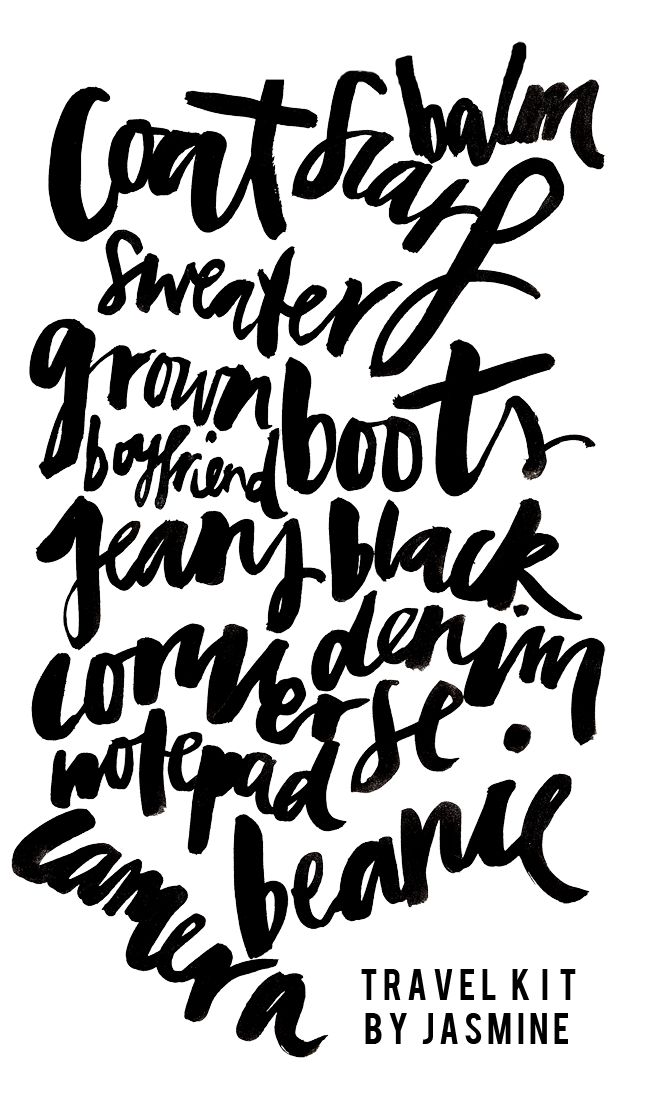 Coat Scarf balm
sweater
grown boots
boyfriend
jeans black
converse denim
notepad
beanie
camera
TRAVEL KIT
BY JASMINE